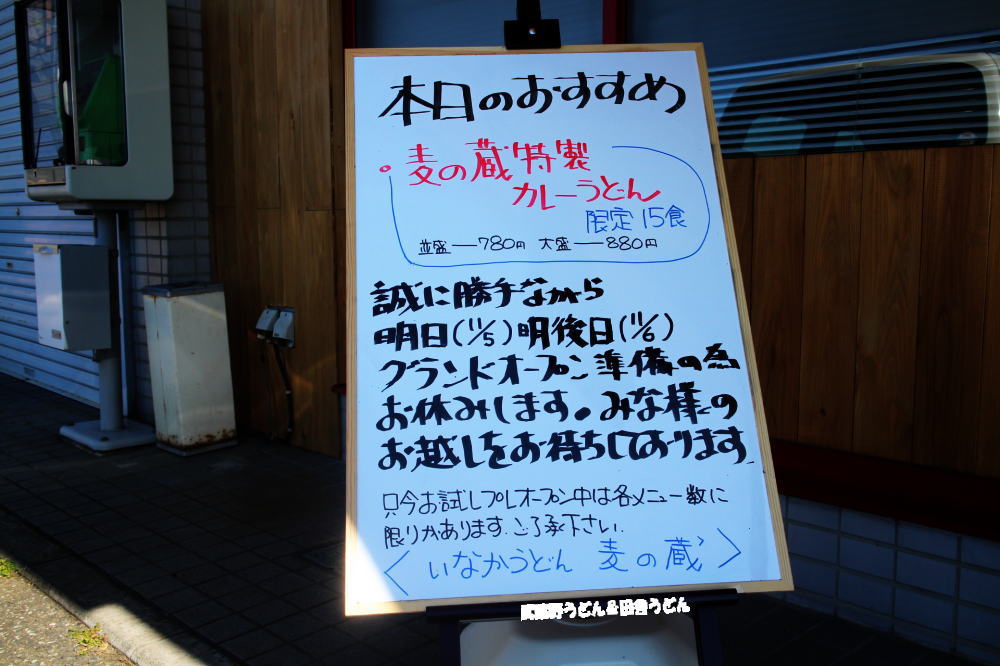 本日のおすすめ
麦の蔵特製
カレーうどん
限定 15食
並盛ー780円 大盛ー880円
誠に勝手ながら
明日(11/5)明後日(11/6)
グランドオープン準備の為
お休みします。みな様の
お越しをお待ちしております
只今お試しプレオープン中は各メニュー数に
限りがあります。ご了承下さい.
〈いなかうどん 麦の蔵〉
武蔵野うどん&田舎うどん